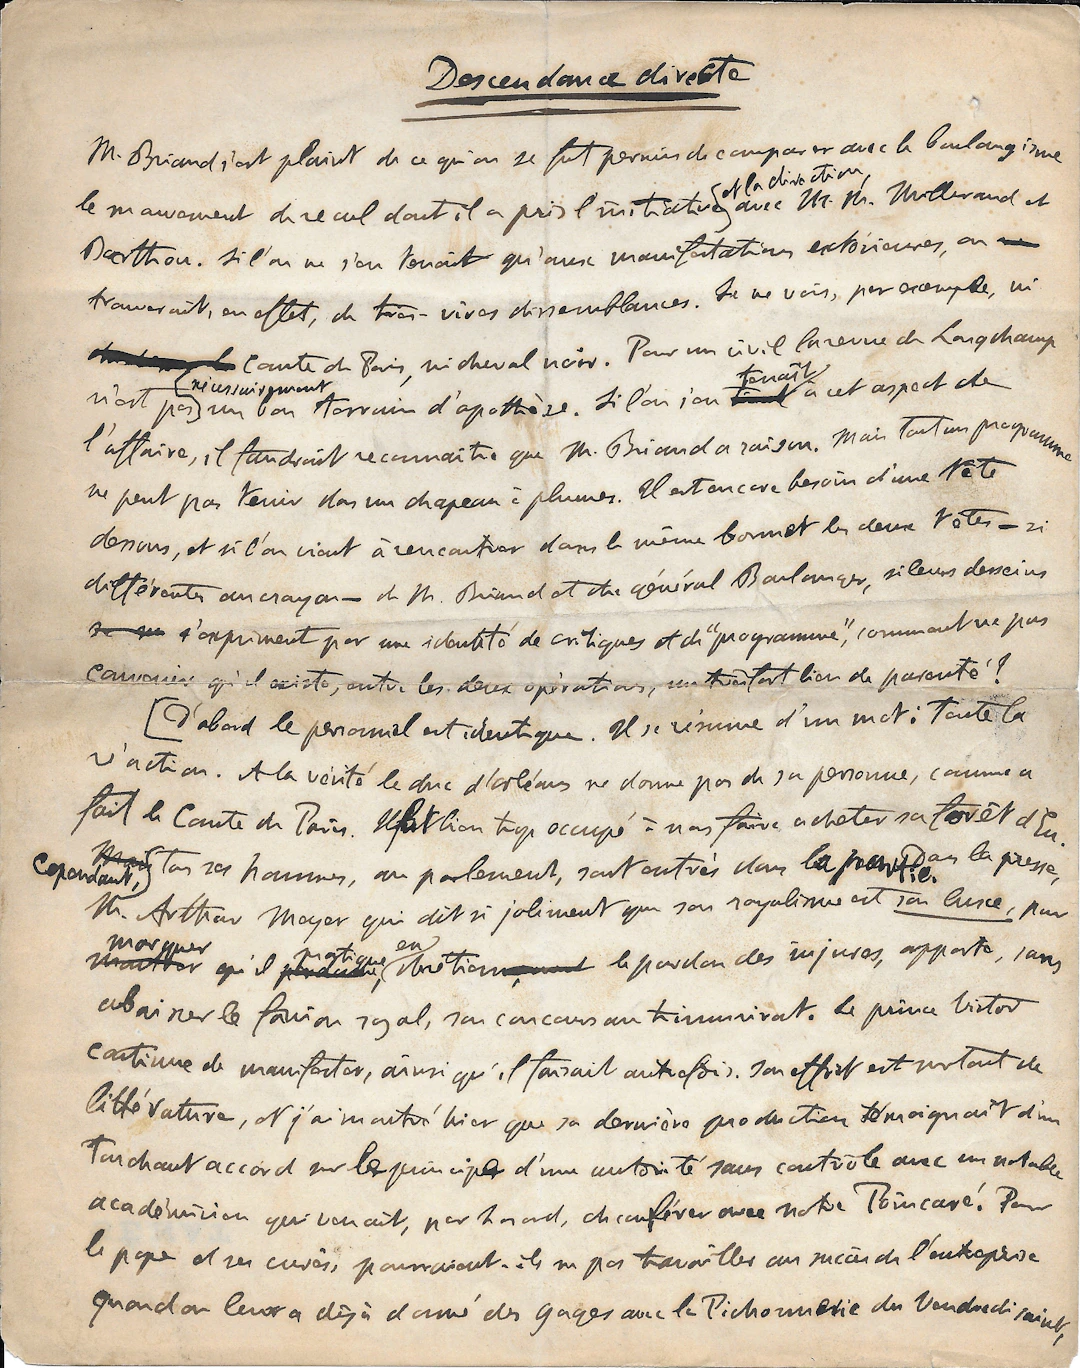 Descendance directe
M. Briand s'est plaint de ce qu'on se fut permis de comparer avec le boulangisme
le mouvement de recul dont il a pris l'initiative et la direction, avec M. M. Millerand et
Barthou. Si l'on ne s'en tenait qu'aux manifestations extérieures, on
trouverait, en effet, de très-vives dissemblances. Je ne vois, par exemple, ni
Comte de Paris, ni cheval noir. Pour un civil la revue de Longchamp
n'est pas nécessairement un bon terrain d'apothèse. Si l'on s'en tenait à cet aspect de
l'affaire, il faudrait reconnaître que M. Briand a raison. Mais tout un programme
ne peut pas tenir dans un chapeau à plumes. Il est encore besoin d'une tête
dessous, et si l'on vient à rencontrer dans le même bonnet les deux têtes — si
différentes au crayon — de M. Briand et du général Boulanger, si leurs desseins
s'expriment par une identité de critiques et de "programme", comment ne pas
convenir qu'il existe, entre les deux opérations, un très fort lien de parenté?
[D'abord le personnel est identique. Il se résume d'un mot: toute la
réaction. A la vérité le duc d'Orléans ne donne pas de sa personne, comme a
fait le Comte de Paris. Il est bien trop occupé à nous faire acheter sa forêt d'Eu.
Cependant, tous ses hommes, au parlement, sont entrés dans la partie. Dans la presse,
M. Arthur Meyer qui dit si joliment que son royalisme est son luxe, pour
marquer qu'il pratique en chrétien le pardon des injures, apporte, sans
abaisser le fanion royal, son concours au triumvirat. Le prince Victor
continue de manifester, ainsi qu'il faisait autrefois. Son effort est surtout de
littérature, et j'ai montré hier que sa dernière production témoignait d'un
touchant accord sur le principe d'une autorité sans contrôle avec un notable
académicien qui venait, par hasard, de conférer avec notre Poincaré. Pour
le pape et ses curés, pourraient-ils ne pas travailler au succès de l'entreprise
quand on leur a déjà donné des gages avec la Pichonnerie du Vendredi saint,